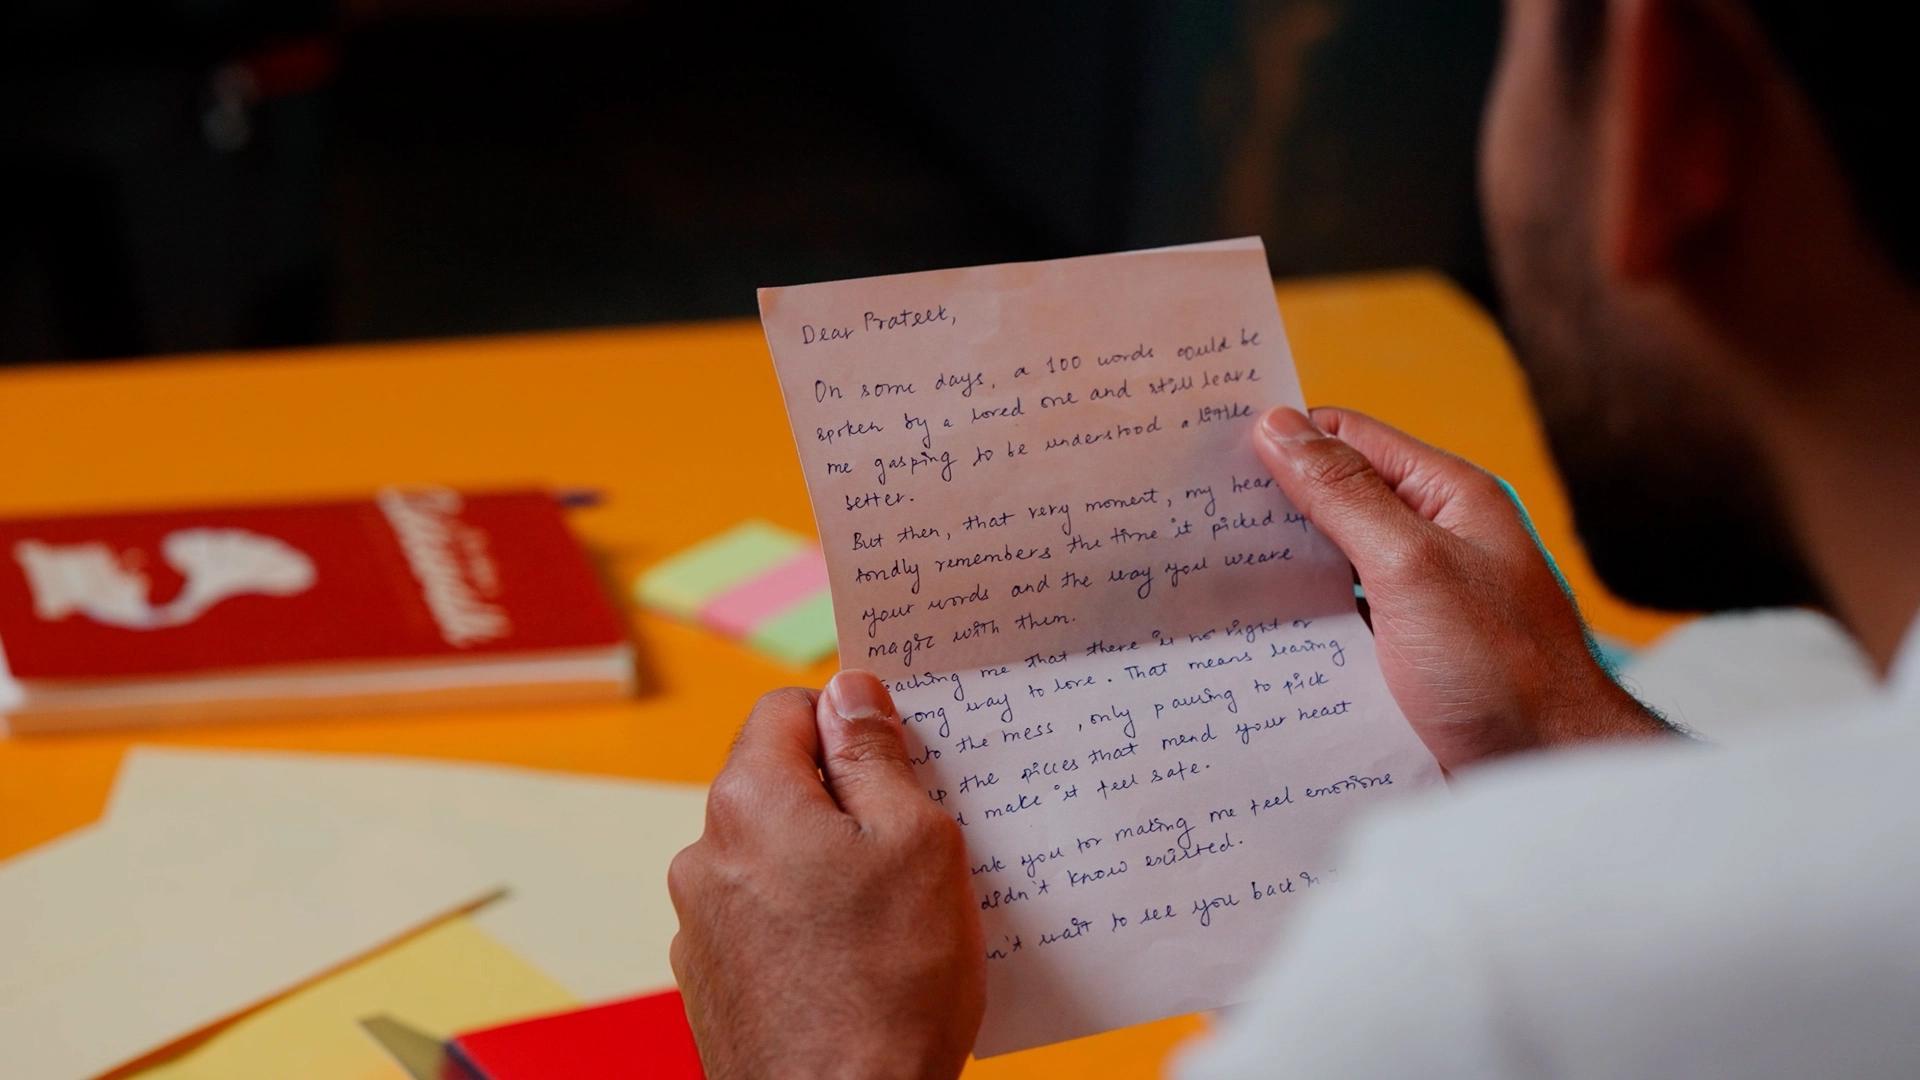 Dear Prateek,
On some days, a 100 words could be
spoken by a loved one and still leave
me gasping to be understood a little
better.
But then, that very moment, my hear
fondly remembers the time it picked up
your words and the way you weave
magic with them.
eaching me that there is no right or
rong way to love. That means leaning
nto the mess, only pausing to pick
up the pieces that mend your heart
d make it feel safe.
ank you for making me feel emotions
didn't know existed.
n't wait to see you back in